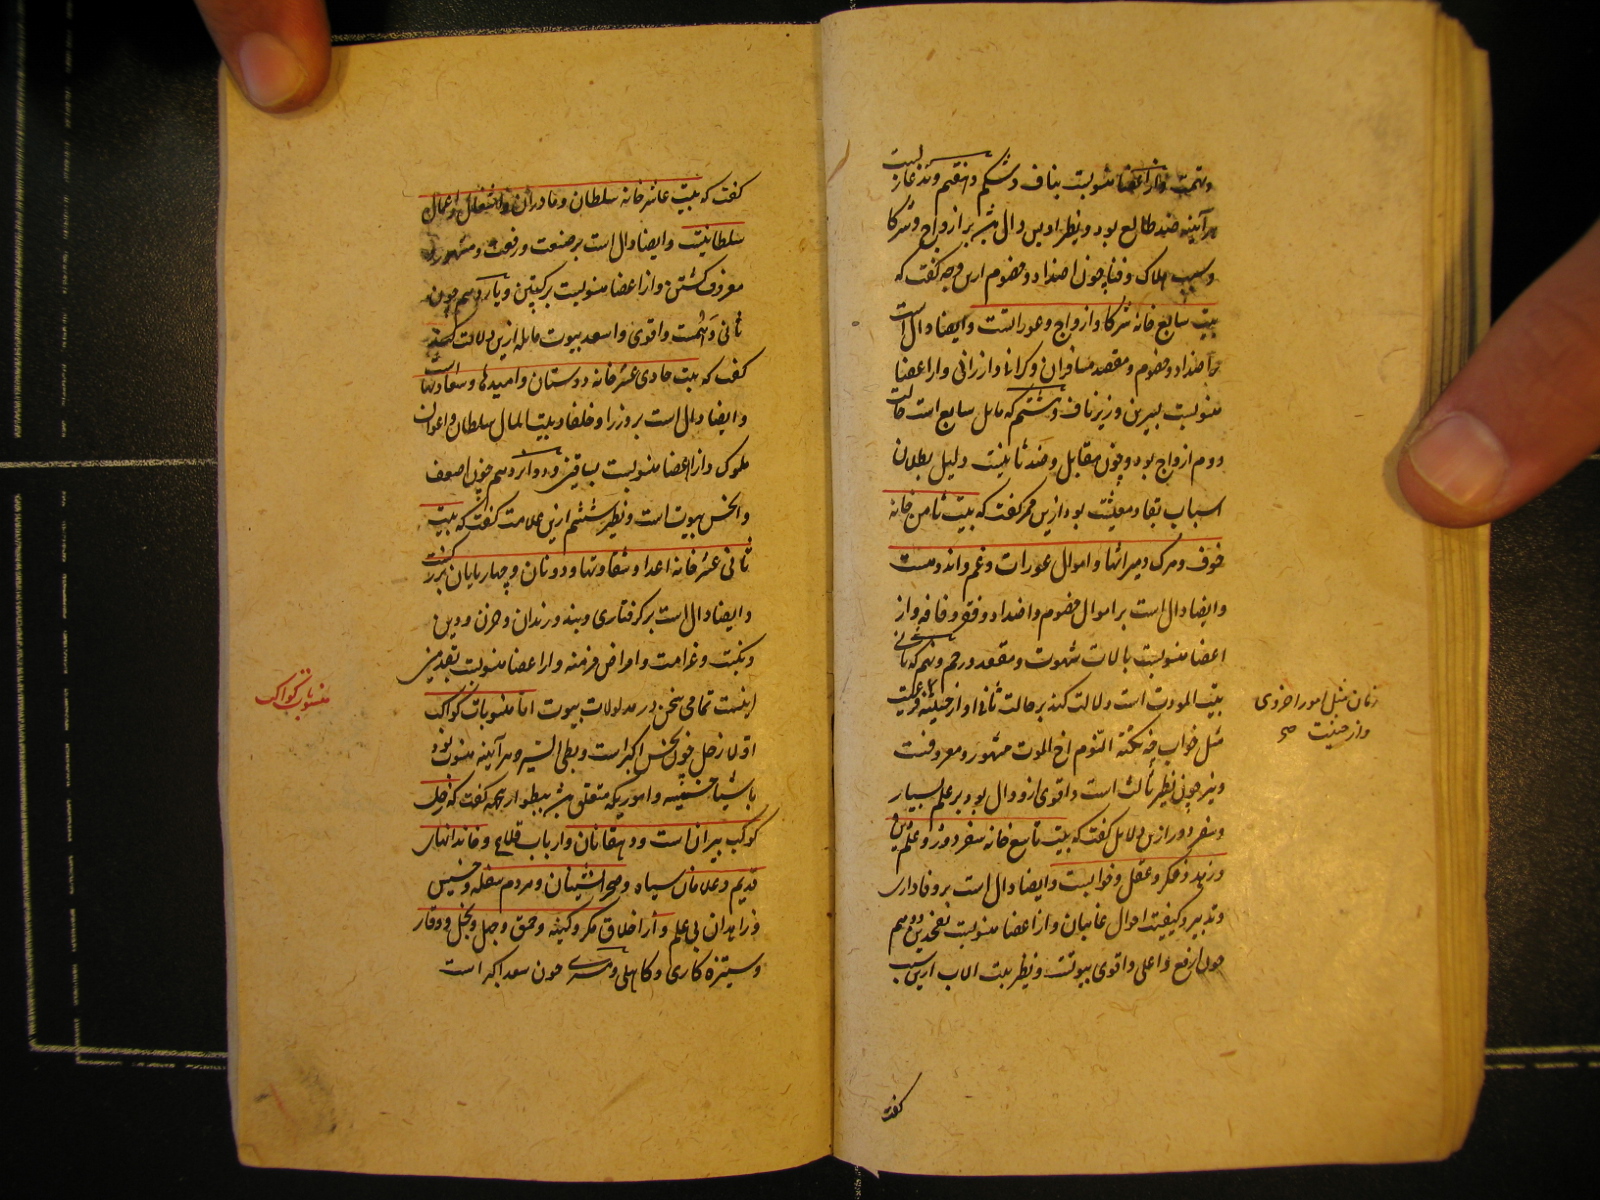 وتهمت واز اعضا منسوبست بناف و شکم و هفتم وتد غاربست
هر آینه ضد طالع بود و بنظر او پس دال باشد بر ازواج و شرکا
و سبب هلاک و فنا چون اضداد و خصوم ازین وجه گفت که
بیت سابع خانه شرکا و ازواج و عوراتست وایضا دال است
بر اضداد و خصوم و مقصد مسافران و کرانی و ارزانی و از اعضا
منسوبست بسرین و زیر ناف و هشتم که مایل سابع است حالت
دوم ازواج بود و چون مقابل و ضد ثانیست دلیل بطلان
اسباب بقا و معیشت بود ازین ممر گفت که بیت ثامن خانه
خوف و مرک و میراثها و اموال عورات و غم و اندوهست
وایضا دال است بر اموال خصوم و اضداد و فقر و فاقه و از
اعضا منسوبست بالات شهوت و مقعد و رحم و نهم که ثانی
بیت الموتست دلالت کند بر حالت ثانی او از حیثیت
مثل خواب چه نکته النوم اخ الموت مشهور و معروفست
و نیز چون بنظر ثالث است و اقوی ازو دال بود بر علم بسیار
و سفر دور ازین دلایل گفت که بیت تاسع خانه سفر دور و علم دین
و زهد و فکر و عقل و خوابست وایضا دال است بر وفاداری
و تدبیر و کیفیت احوال غایبان و از اعضا منسوبست بفخذین و دهم
چون ارفع و اعلی و اقوی بیوتست و بنظر بیت الاب ازین سبب
زمان مثل امور اخروی
واز حیثیت صح
گفت
گفت که بیت عاشر خانه سلطان و مادران و اشغال و اعمال
سلطانیست وایضا دال است بر صنعت و رفعت و مشهور و
معروف گشتن و از اعضا منسوبست برکبتین و یازدهم چون
ثانی دهمست و اقوی و اسعد بیوت مایله ازین دلالت
گفت که بیت حادی عشر خانه دوستان و امیدها و سعادتهاست
وایضا دال است بر وزرا و خلفا و بیت المال سلطان و اعوان
ملوک و از اعضا منسوبست بساقین و دوازدهم چون اضعف
و انحس بیوت است و بنظر ششم ازین علامت گفت که بیت
ثانی عشر خانه اعدا و شقاوتها و دونان و چهارپایان بزرکست
وایضا دال است بر کرفتاری و بند و زندان و حزن و دین
و نکبت و غرامت و امراض مزمنه و از اعضا منسوبست بقدمین
اینست تمامی سخن در مدلولات بیوت اما منسوبات کواکب
اول زحل چون نحس اکبر است و بطی السیر هر آینه منسوب بود
باشیاء خسیسه و اموریکه متعلق باشد ببطو ازین جمله گفت که زحل
کوکب پیران است و دهقانان و ارباب قلاع و خاندانهای
قدیم و غلامان سیاه و صحرانشینان و مردم سفله و خسیس
و زاهدان بی علم و از اخلاق مکر و کینه و حمق و جهل و بخل و وقار
و ستیزه کاری و کاهلی و مشتری چون سعد اکبر است
منسوبات کواکب